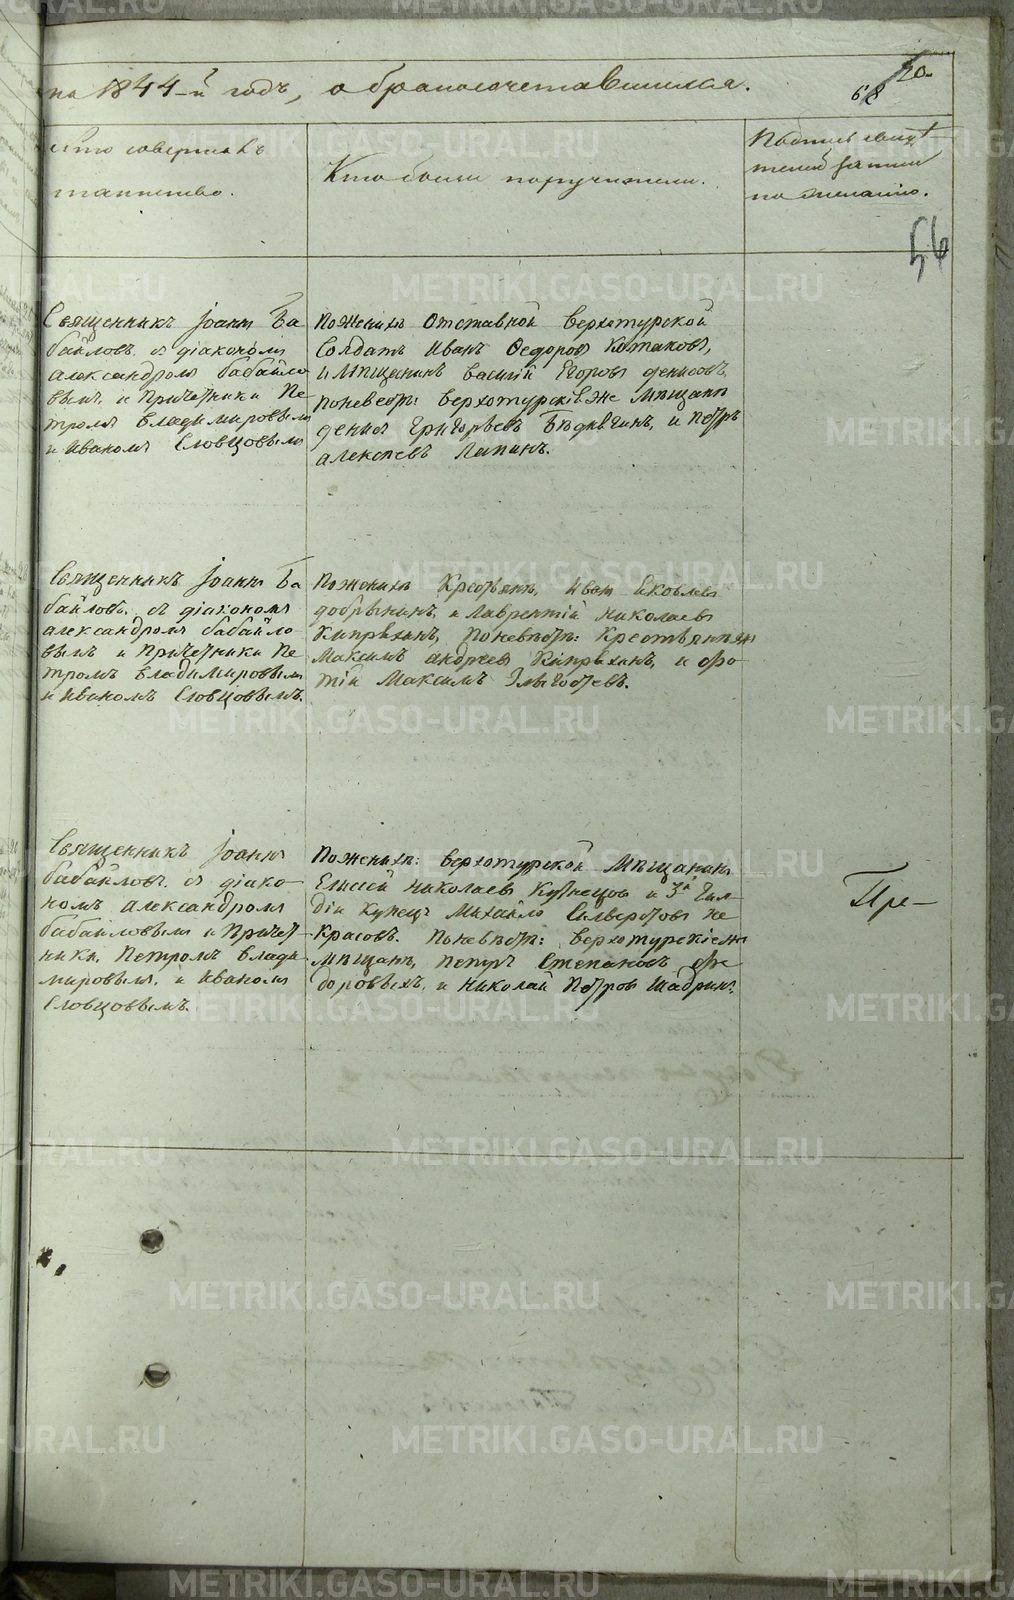 на 1844-й годъ, о бракосочетавшихся.
68
20.
Кто совершалъ
таинство.
Кто были поручители.
Подпись свидѣ
телей записи
по желанію.
56
Священникъ Іоаннъ Ба
байловъ съ діакономъ
александромъ бабайло
вымъ, и Причетники Пе
тромъ владимировымъ
и иваномъ Словцовымъ
Поженихѣ Отставной верхотурской
Солдатъ Иванъ Федоровъ Котаковъ,
и мѣщанинъ василій Егоровъ денисовъ
Поневестѣ: верхотурскіе же Мѣщане
денисъ Григорьевъ и Петръ
алексѣевъ Лапинъ.
Священникъ Іоаннъ Ба
байловъ, съ діакономъ
александромъ бабайло-
вымъ и Причетники Пе
тромъ владимировымъ
и Иваномъ Словцовымъ.
Поженихѣ Крестьяне, Иванъ Яковлевъ
добрынинъ, и лаврентій николаевъ
Кипряхинъ, Поневѣстѣ: Крестьянинъ
Максимъ андреевъ Кипряхинъ, и Фо-
тій Максимъ
Священникъ Іоаннъ
бабайловъ. съ діако-
номъ александромъ
бабайловымъ и Причет
ники, Петромъ влади
мировымъ, и Иваномъ
Словцовымъ.
Поженихѣ: верхотурской Мѣщанинъ
Елисей николаевъ Кузнецов и 3й Гил-
діи Купецъ Михайло Силверстовъ не
красовъ. Поневѣстѣ: верхотурскіеже
мѣщане, петръ Степановъ фе
доровыхъ, и николай Петровъ Шадринъ.
Пре-
METRIKI.GASO-URAL.RU